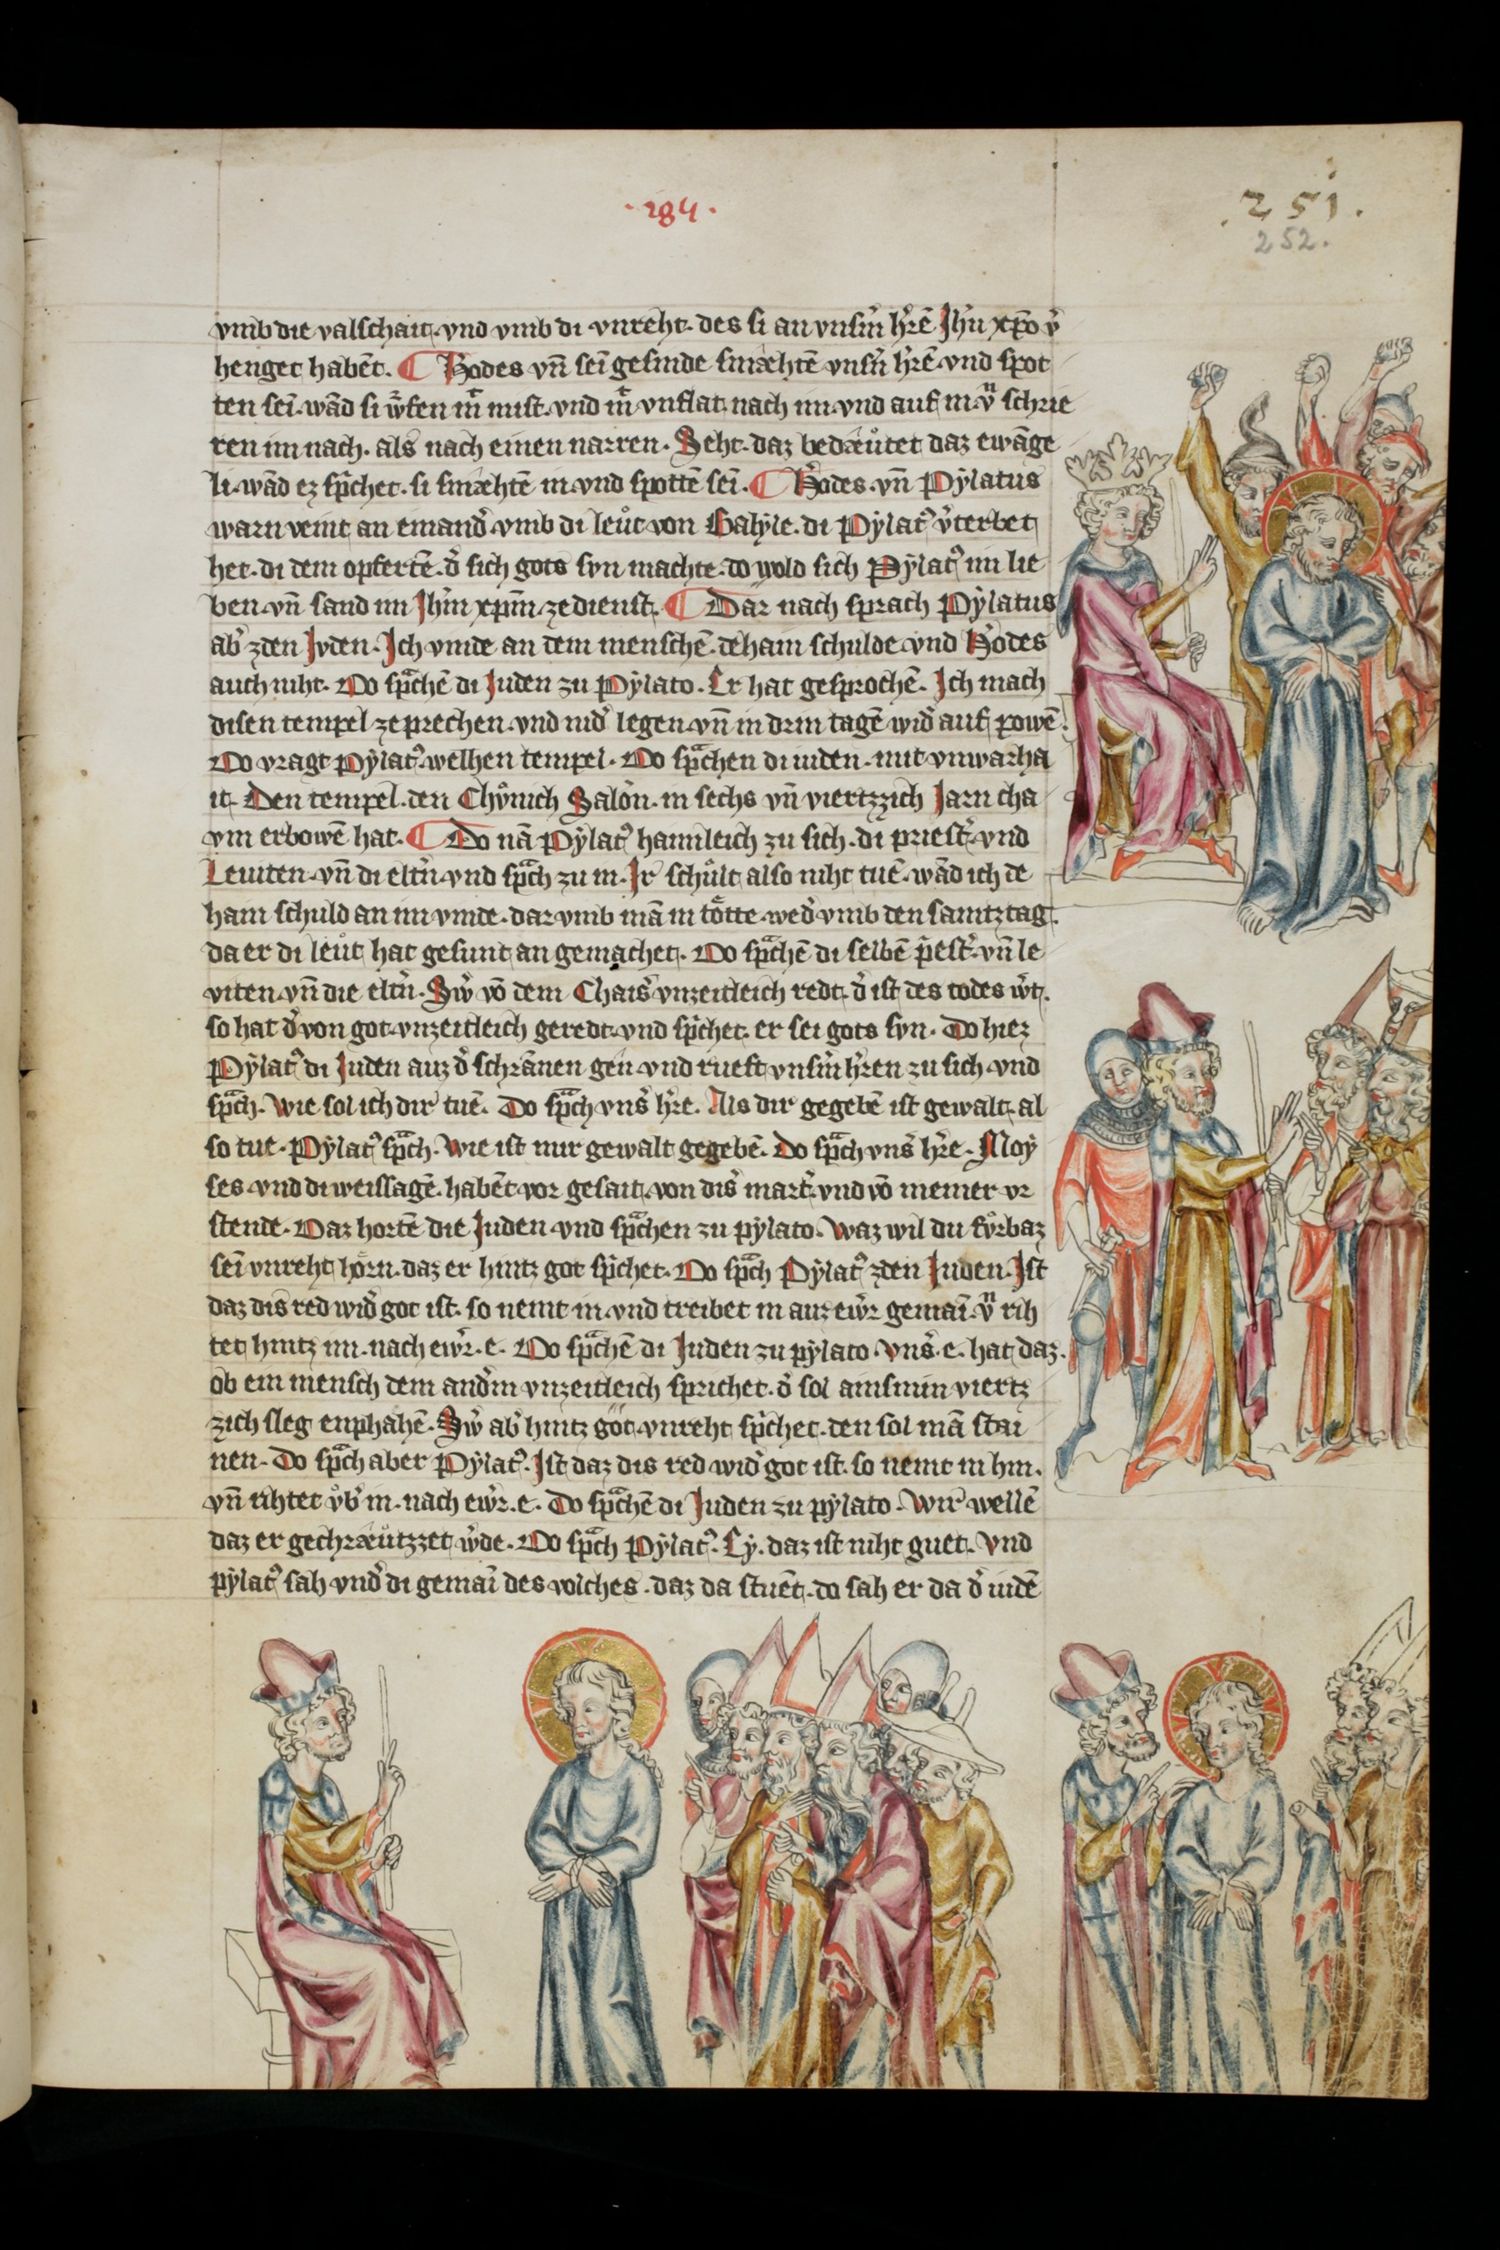 ·284·
.251.
252.
vmb die valschait. vnd vmb di vnreht. des si an vnsm̄ hr̄ē Jhm̄ xpo v̄
henget habēt. Hodes vn̄ sei gesinde smæhtē vnsn̄ hr̄ē. vnd spot
ten sei. wād si w̄fen mͥt mist. vnd mͥt vnflat. nach im. vnd auf in. vͣ schrie
ren im nach. als nach einen narren. Seht. daz bedæůtet daz ewāge
li. wād ez sp̄chet. si smæhtē in. vnd spottē sei. Hodes. vn̄ Pylatus
warn veint an einand̄. vmb di leůt von Galyle. di Pylatꝰ v̄terbet
het. di dem opfertē. d̄ sich gots syn machte. do wold sich Pylatꝰ im lie
ben. vn̄ sand im Jhm̄ xpm̄. ze dienst. Dar nach sprach Pylatus
ab̄ zden Jvden. Ich vinde an dem menschē. dehain schulde. vnd Hodes
auch niht. Do spͣchē di Juden zu Pylato. Er hat gesprochē. Ich mach
disen tempel zeprechen. vnd nid̄ legen. vn̄ in drin tagē wid̄ auf powē.
Do vragt Pylatꝰ. welhen tempel. Do spͣchen di iuden. mit vnwarha
it. Den tempel. den Chůnich Salōn. in sechs vn̄ viertzzich Jarn cha
vm erbowē hat. Do nā Pylatꝰ haimleich zu sich. di priest̄. vnd
Leuiten. vn̄ di eltn̄. vnd spͣch zu in. Ir schůlt also niht tuē. wād ich de
hain schuld an im vinde. dar vmb mā in tötte. wed̄ vmb den samtztag.
da er di leůt hat gesunt an gemachet. Do spͣchē di selbē p̄est̄. vn̄ le
viten. vn̄ die eltn̄. Sw̄ vō dem Chais̄ vnzeitleich redt. d̄ ist des todes w̄t.
so hat d̄ von got. vnzeitleich geredt. vnd sp̄chet. er sei gots syn. Do hiez
Pylatꝰ di Juden auz d̄ schrānen gen. vnd rueft vnsm̄ hr̄en zu sich. vnd
spͣch. Wie sol ich dir tuē. Do spͣch vns̄ hr̄e. Als dir gegebē ist gewalt. al
so tue. Pylatꝰ spͣch. Wie ist mir gewalt gegebē. Do spͣch vns̄ hr̄e. Moy
ses. vnd di weissagē. habēt vor gesait. von dis̄ mart̄. vnd vō meiner vr
stende. Daz hortē die Juden. vnd spͣchen zu pylato. Waz wil du fůrbaz
sei vnreht hörn. daz er hintz got sp̄chet. Do spͣch Pylatꝰ zden Juden. Ist
daz dis red wid̄ got ist. so nemt in. vnd treibet in auz ewr̄ gemai. vͣ rih
tet hintz im. nach ewr̄. e. Do spͣchē di Juden zu pylato. Vns̄. e. hat daz.
ob ein mensch dem and̄m vnzeitleich sprichet. d̄ sol ainsmin viertz
zich sleg enphahē. Sw̄ ab̄ hintz got. vnreht sp̄chet. den sol mā stai
nen. Do spͣch aber Pylatꝰ. Ist daz dis red wid̄ got ist. so nemt in hin.
vn̄ rihtet v̊b̄ in. nach ewr̄. e. Do spͣchē di Juden zu pylato. Wir wellē
daz er gechræůtzzet w̄de. Do spͣch Pylatꝰ. Ey. daz ist niht guet. Vnd
pylatꝰ sah vnd̄ di gemai des volches. daz da stuēt. do sah er da d̄ iudē